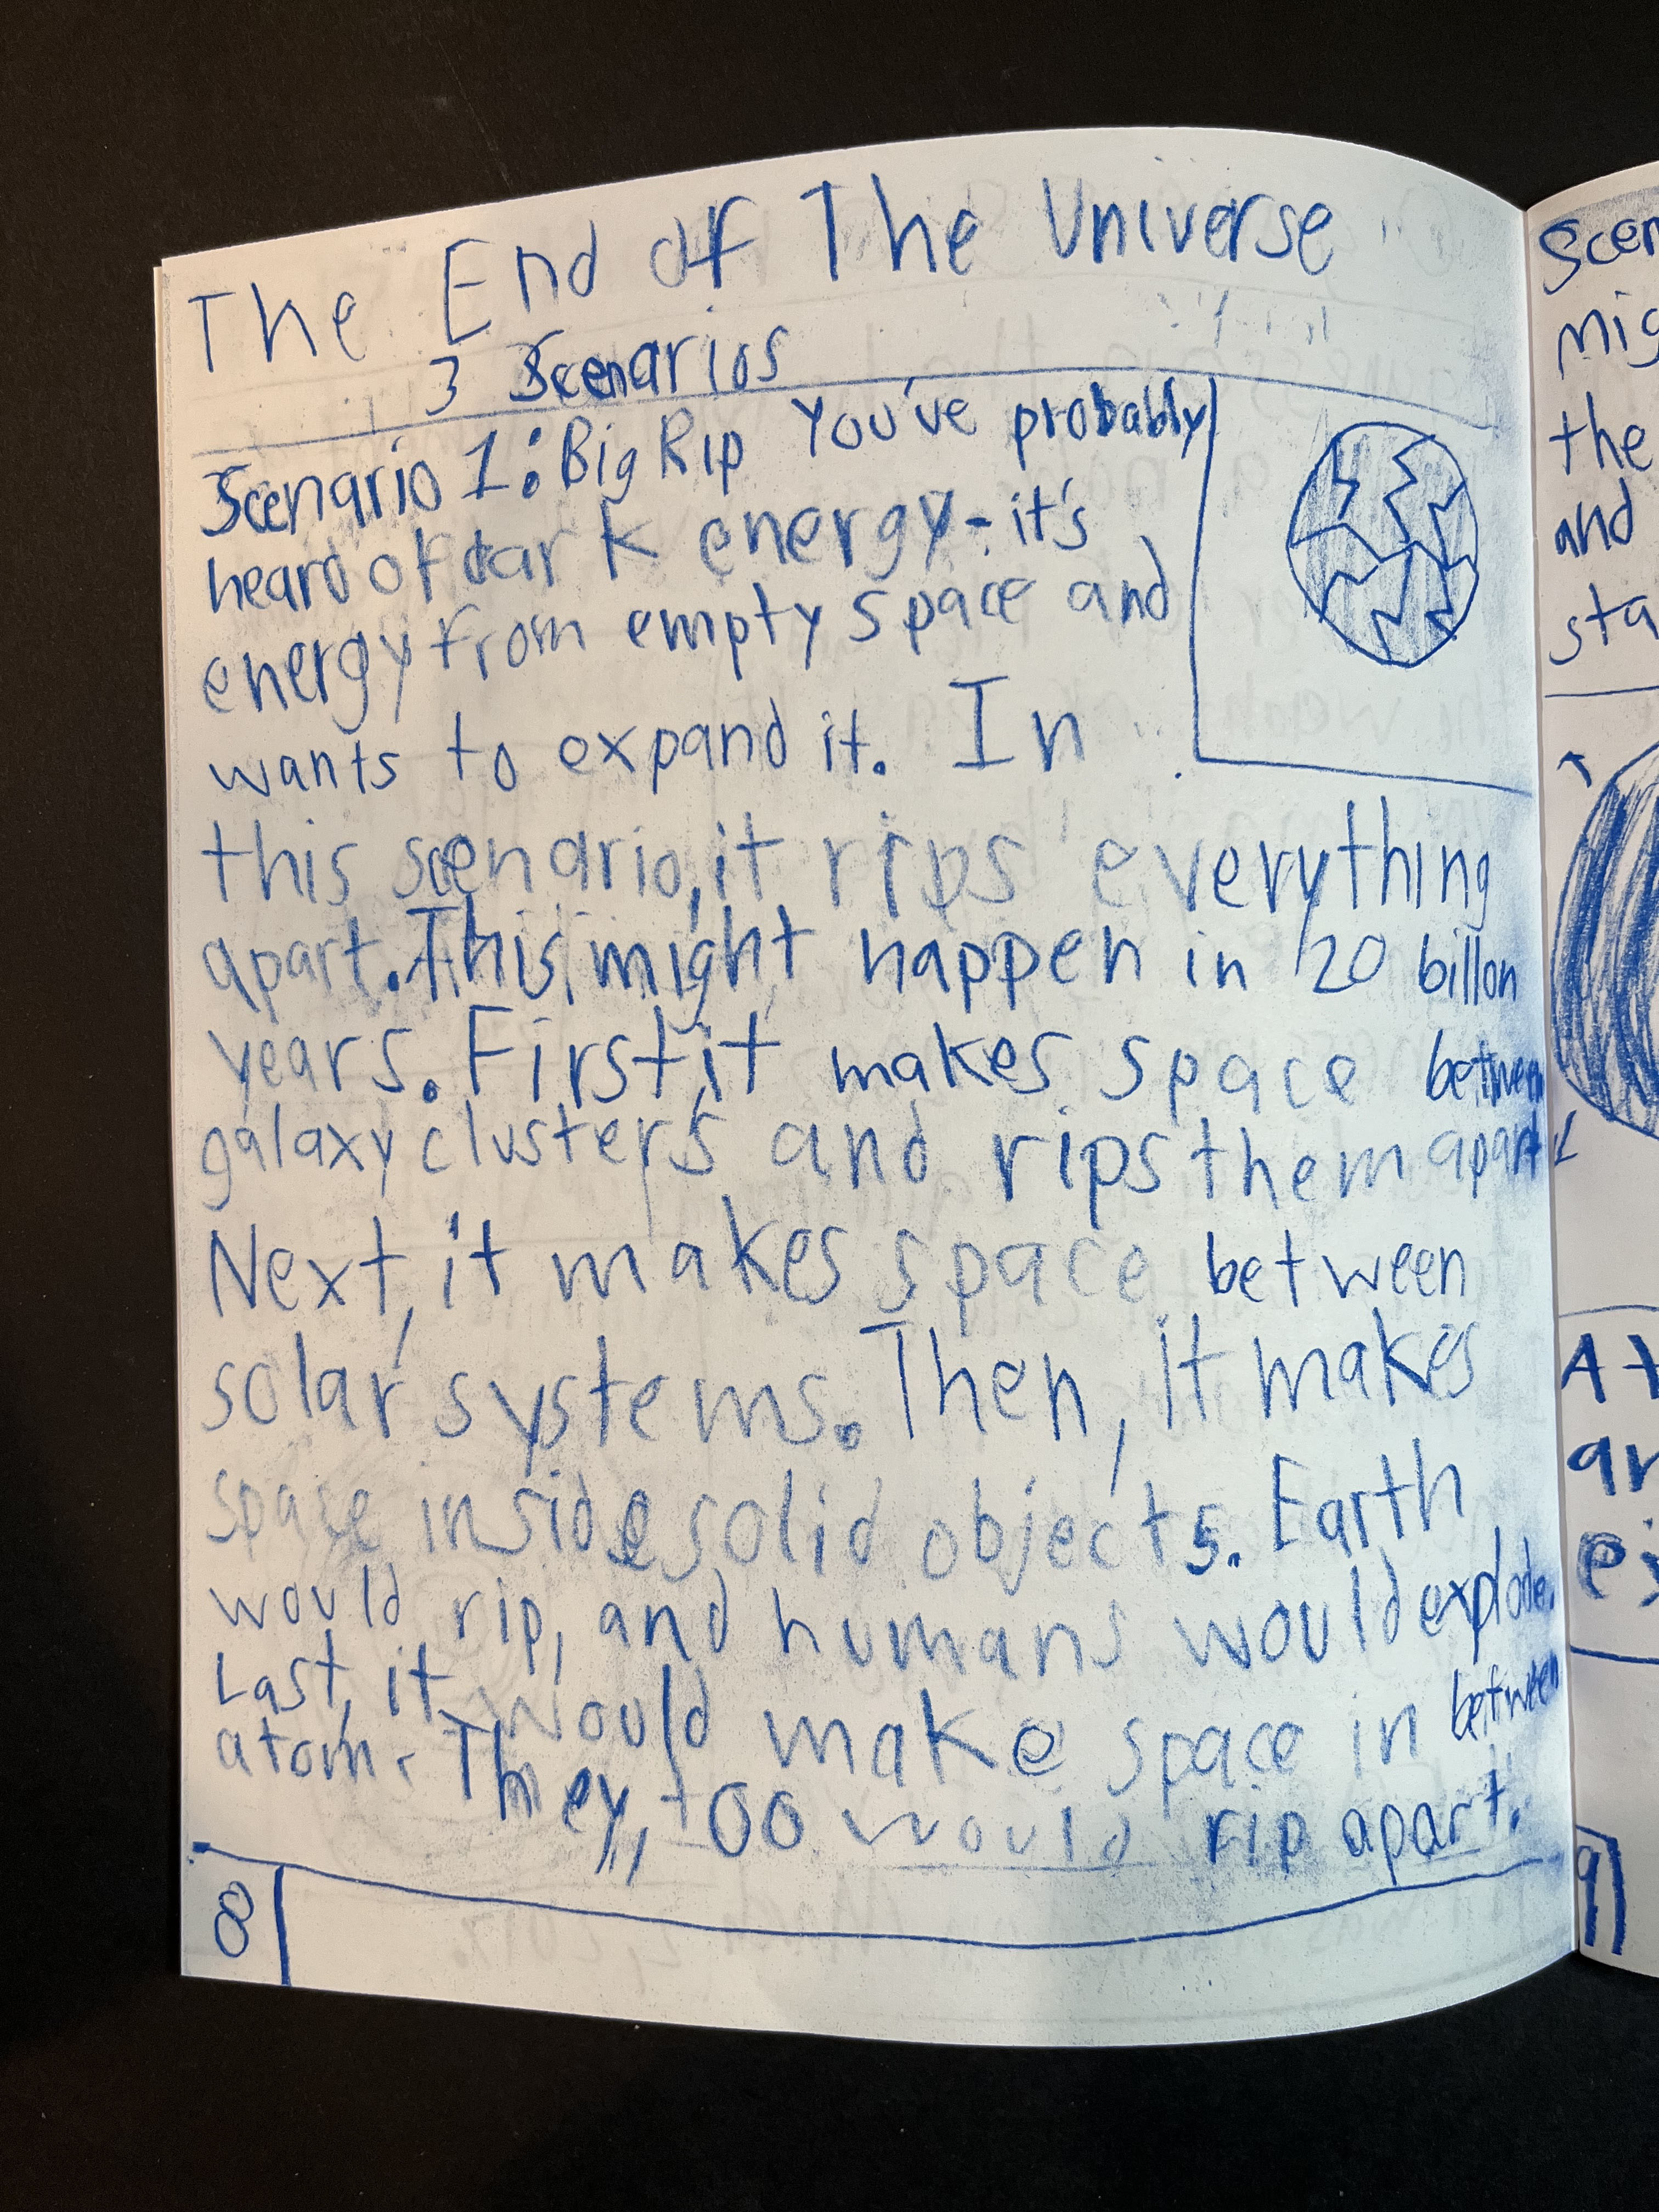 The End of The Universe
3 Scenarios
Scenario 1: Big Rip You've probably
heard of dark energy - it's
energy from empty space and
wants to expand it. In
this scenario, it rips everything
apart. This might happen in 20 billon
years. First, it makes space between
galaxy clusters and rips them apart
Next, it makes space between
solar systems. Then, it makes
space inside solid objects. Earth
would rip, and humans would explode.
Last, it would make space in between
atom. They, too would rip apart.
8
Scen
mig
the
and
sta
At
an
9